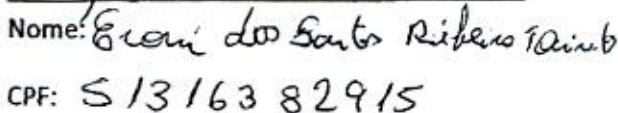 Nome: Eroni dos Santos Ribeiro
CPF: 51316382915